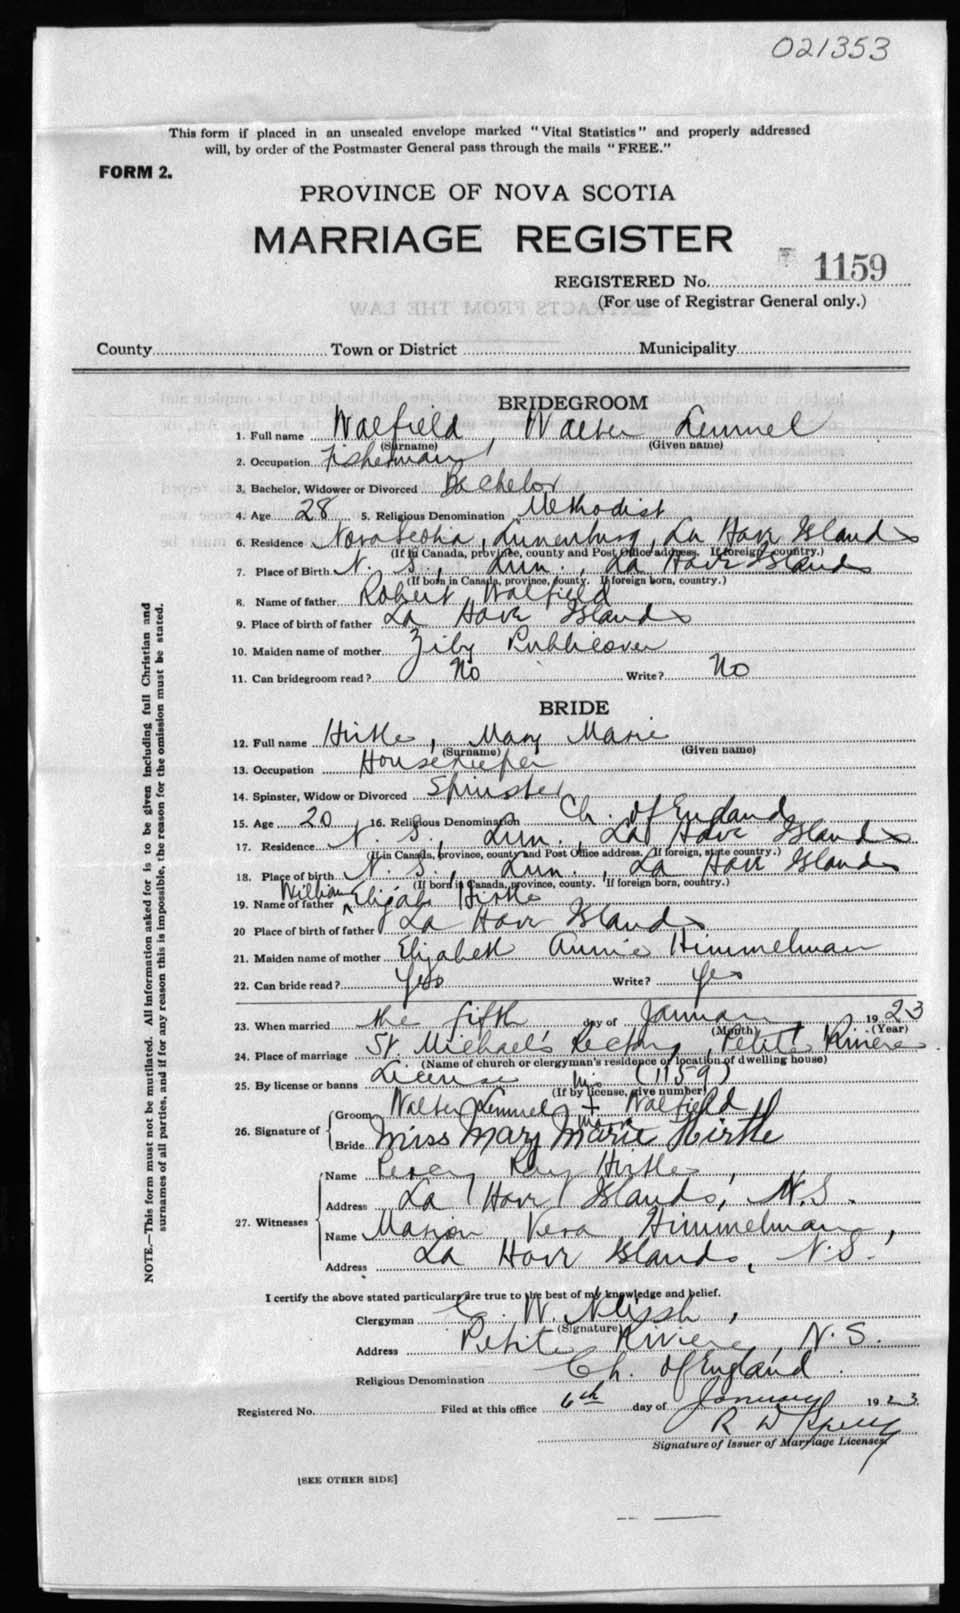 021353
This form if placed in an unsealed envelope marked "Vital Statistics" and properly addressed
will, by order of the Postmaster General pass through the mails "FREE."
FORM 2.
PROVINCE OF NOVA SCOTIA
MARRIAGE REGISTER
REGISTERED No. 1159
(For use of Registrar General only.)
County Town or District Municipality
BRIDEGROOM
1. Full name Walfield, Walter Lemmel
(Surname) (Given name)
2. Occupation Fisherman
3. Bachelor, Widower or Divorced Bachelor
4. Age 28 5. Religious Denomination Methodist
6. Residence Nova Scotia, Lunenburg, La Have Islands
(If in Canada, province, county and Post Office address. If foreign, country.)
7. Place of Birth N. S., Lun., La Have Islands
(If born in Canada, province, county. If foreign born, country.)
8. Name of father Robert Walfield
9. Place of birth of father La Have Islands
10. Maiden name of mother Ziby Publicover
11. Can bridegroom read? No Write? No
BRIDE
12. Full name Hirtle, Mary Marie
(Surname) (Given name)
13. Occupation Housekeeper
14. Spinster, Widow or Divorced Spinster
15. Age 20 16. Religious Denomination Ch. of England
17. Residence N. S., Lun., La Have Islands
(If in Canada, province, county and Post Office address. If foreign, state country.)
18. Place of birth N. S., Lun., La Have Islands
(If born in Canada, province, county. If foreign born, country.)
19. Name of father William Elijah Hirtle
20 Place of birth of father La Have Islands
21. Maiden name of mother Elizabeth Annie Himmelman
22. Can bride read? Yes Write? Yes
23. When married the fifth day of January, 1923
(Month) (Year)
24. Place of marriage St Michael's Rectory, Petite Riviere
(Name of church or clergyman's residence or location of dwelling house)
25. By license or banns License (1159)
(If by license, give number)
26. Signature of Groom Walter Lemmel his + mark Walfield
Bride Miss Mary Marie Hirtle
27. Witnesses Name Percy Ray Hirtle,
Address La Have Islands, N.S.
Name Marion Vera Himmelman,
Address La Have Islands, N.S.
I certify the above stated particulars are true to the best of my knowledge and belief.
Clergyman C. W.
(Signature)
Address Petite Riviere, N.S.
Religious Denomination Ch. of England.
Registered No. Filed at this office 6th day of January 1923.
R W
Signature of Issuer of Marriage Licenses.
[SEE OTHER SIDE]
NOTE.—This form must not be mutilated. All information asked for is to be given including full Christian and
surnames of all parties, and if for any reason this is impossible, the reason for the omission must be stated.